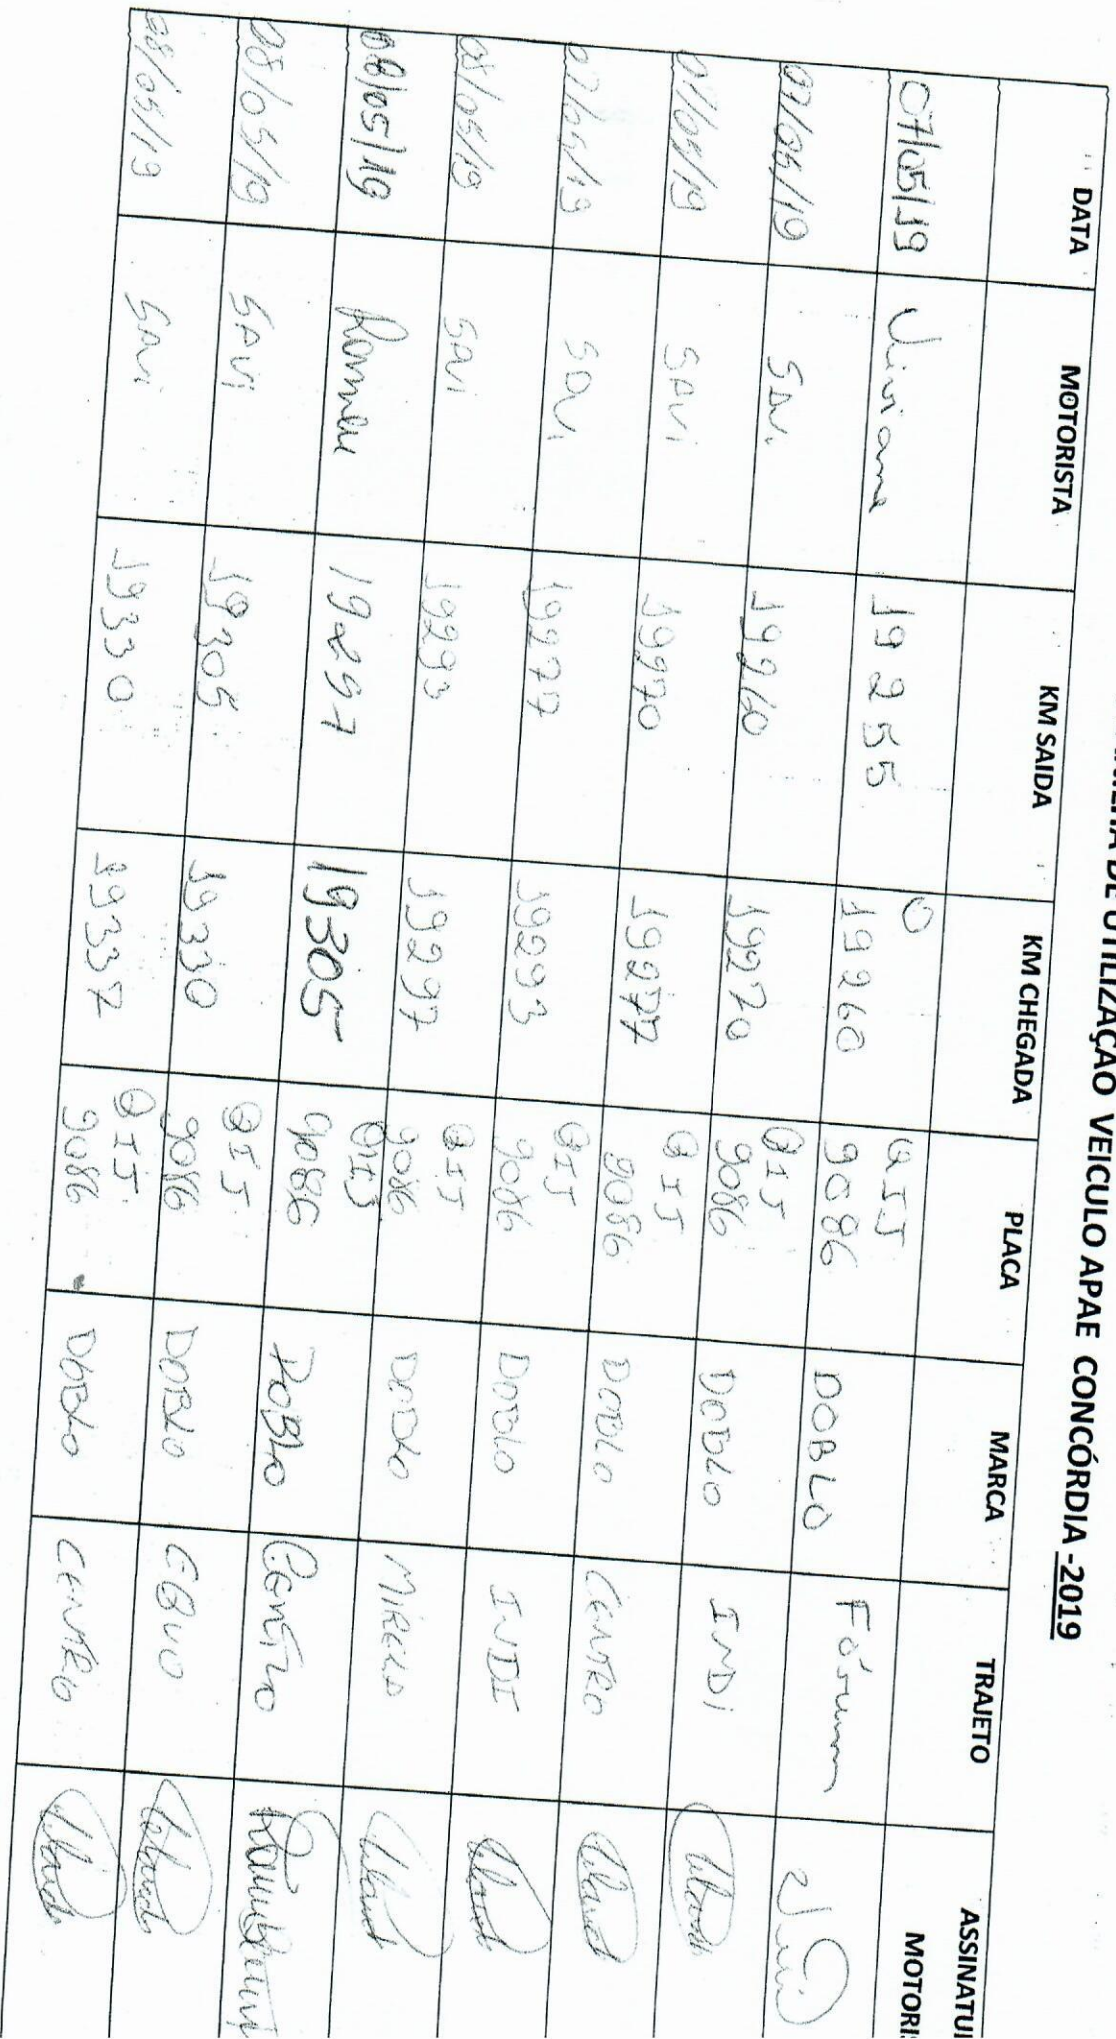 DE UTILIZAÇÃO VEICULO APAE CONCÓRDIA -2019
DATA MOTORISTA KM SAIDA KM CHEGADA PLACA MARCA TRAJETO ASSINATU
MOTORI
07/05/19 Viviane 19255 19260 QIJ 9086 DOBLO Fórum
07/05/19 SAVI 19260 19270 QIJ 9086 DOBLO INDI
07/05/19 SAVI 19270 19277 QIJ 9086 DOBLO CENTRO
07/05/19 SAVI 19277 19293 QIJ 9086 DOBLO INDI
08/05/19 SAVI 19293 19297 QIJ 9086 DOBLO MIRELA
08/05/19 19297 19305 QIJ 9086 DOBLO Centro
08/05/19 SAVI 19305 19330 QIJ 9086 DOBLO
08/05/19 SAVI 19330 19337 QIJ 9086 DOBLO CENTRO